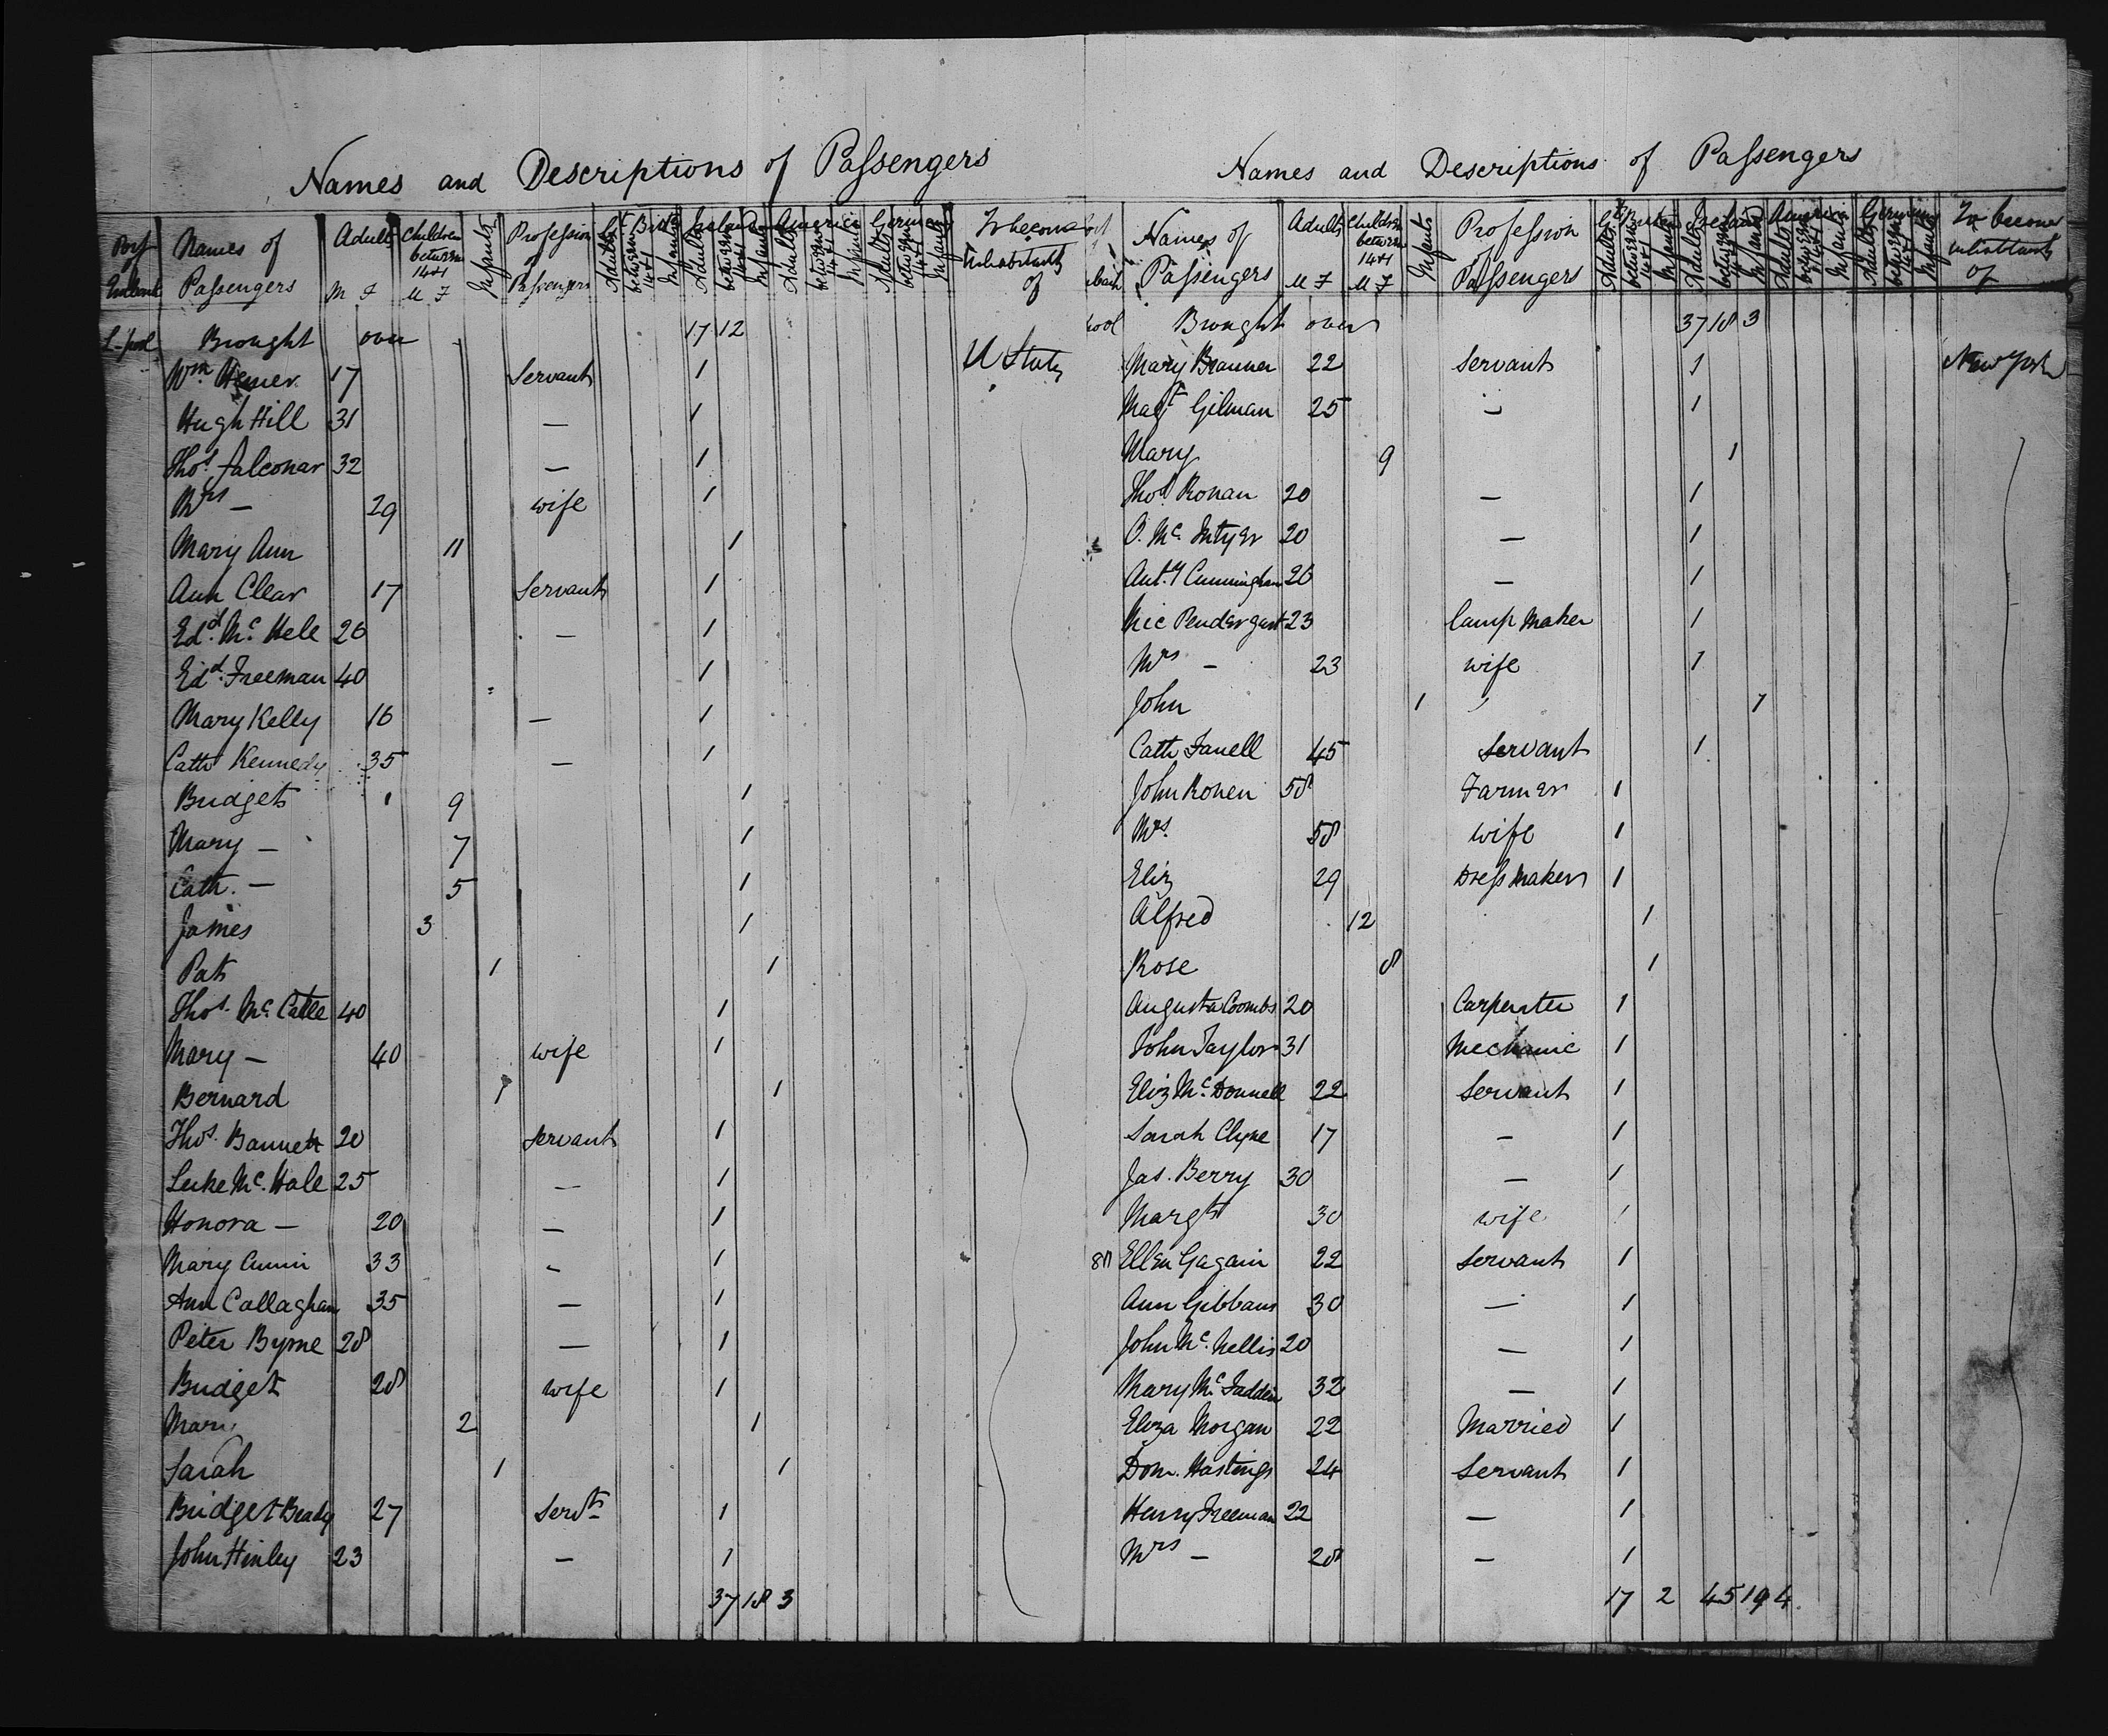 Names and Descriptions of Passengers
Port Embark Names of Passengers Adults M F Children between 14+1 M F Infants Profession of Passengers Gt Brit Adults between 14+1 Infants Ireland Adults between 14+1 Infants America Adults between 14+1 Infants Germany Adults between 14+1 Infants To become Inhabitants of
L-pool Brought over 17 12
Wm. 17 Servant 1 U States
Hugh Hill 31 — 1
Thos. Falconar 32 — 1
Mrs — 29 wife 1
Mary Ann 11 1
Ann Clear 17 Servant 1
Edd. Mc. Hele 26 — 1
Edd. Freeman 40 1
Mary Kelly 16 — 1
Cath Kennedy 35 — 1
Bridget 9 1
Mary — 7 1
Cath. — 5 1
James 3 1
Pat 1 1
Thos. Mc. Cabe 40 1
Mary — 40 wife 1
Bernard 1 1
Thos. Bannett 20 Servant 1
Luke Mc. Hale 25 — 1
Honora — 20 — 1
Mary 33 - 1
Ann Callaghan 35 — 1
Peter Byrne 28 — 1
Bridget 28 wife 1
Mary 2 1
Sarah 1 1
Bridget Brady 27 Servt 1
John Hinley 23 — 1
37 18 3
Names and Descriptions of Passengers
Names of Passengers Adults M F Children between 14+1 M F Infants Profession Passengers Gt Britain Adults between 14+1 Infants Ireland Adults between 14+1 Infants America Adults between 14+1 Infants Germany Adults between 14+1 Infants To become inhabitants of
pool Brought over 37 18 3
Mary Brannan 22 Servant 1 New York
Magt Gilman 25 — 1
Mary 9 1
Thos Ronan 20 — 1
O. Mc. Intyer 20 — 1
Anty. Cunningham 26 — 1
Mic Pendergast 23 lamp Maker 1
Mrs — 23 wife 1
John 1 1
Cath 45 Servant 1
John Ronen 58 Farmer 1
Mrs. 58 wife 1
Eliz 29 Dress Maker 1
Alfred 12 1
Rose 8 1
Augusta Coombs 20 Carpenter 1
John Taylor 31 Mechanic 1
Eliz Mc. Donnell 22 Servant 1
Sarah Clyne 17 — 1
Jas. Berry 30 — 1
Margt 30 wife 1
Ellen Gagain 22 Servant 1
Ann Gibbans 30 — 1
John Mc. Nellis 20 — 1
Mary Mc. Fadden 32 — 1
Eliza Morgan 22 Married 1
Dom. Hastings 24 Servant 1
Henry Freeman 22 — 1
Mrs — 28 — 1
17 2 45 19 4